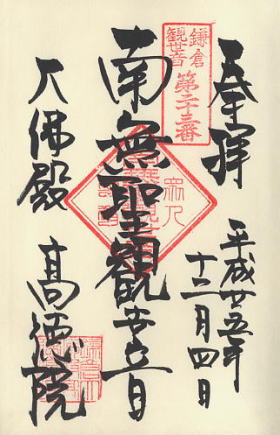 奉拝
平成廿五年
十二月四日
鎌倉
観世音
第二十三番
南無聖観世音
大佛殿
高徳院